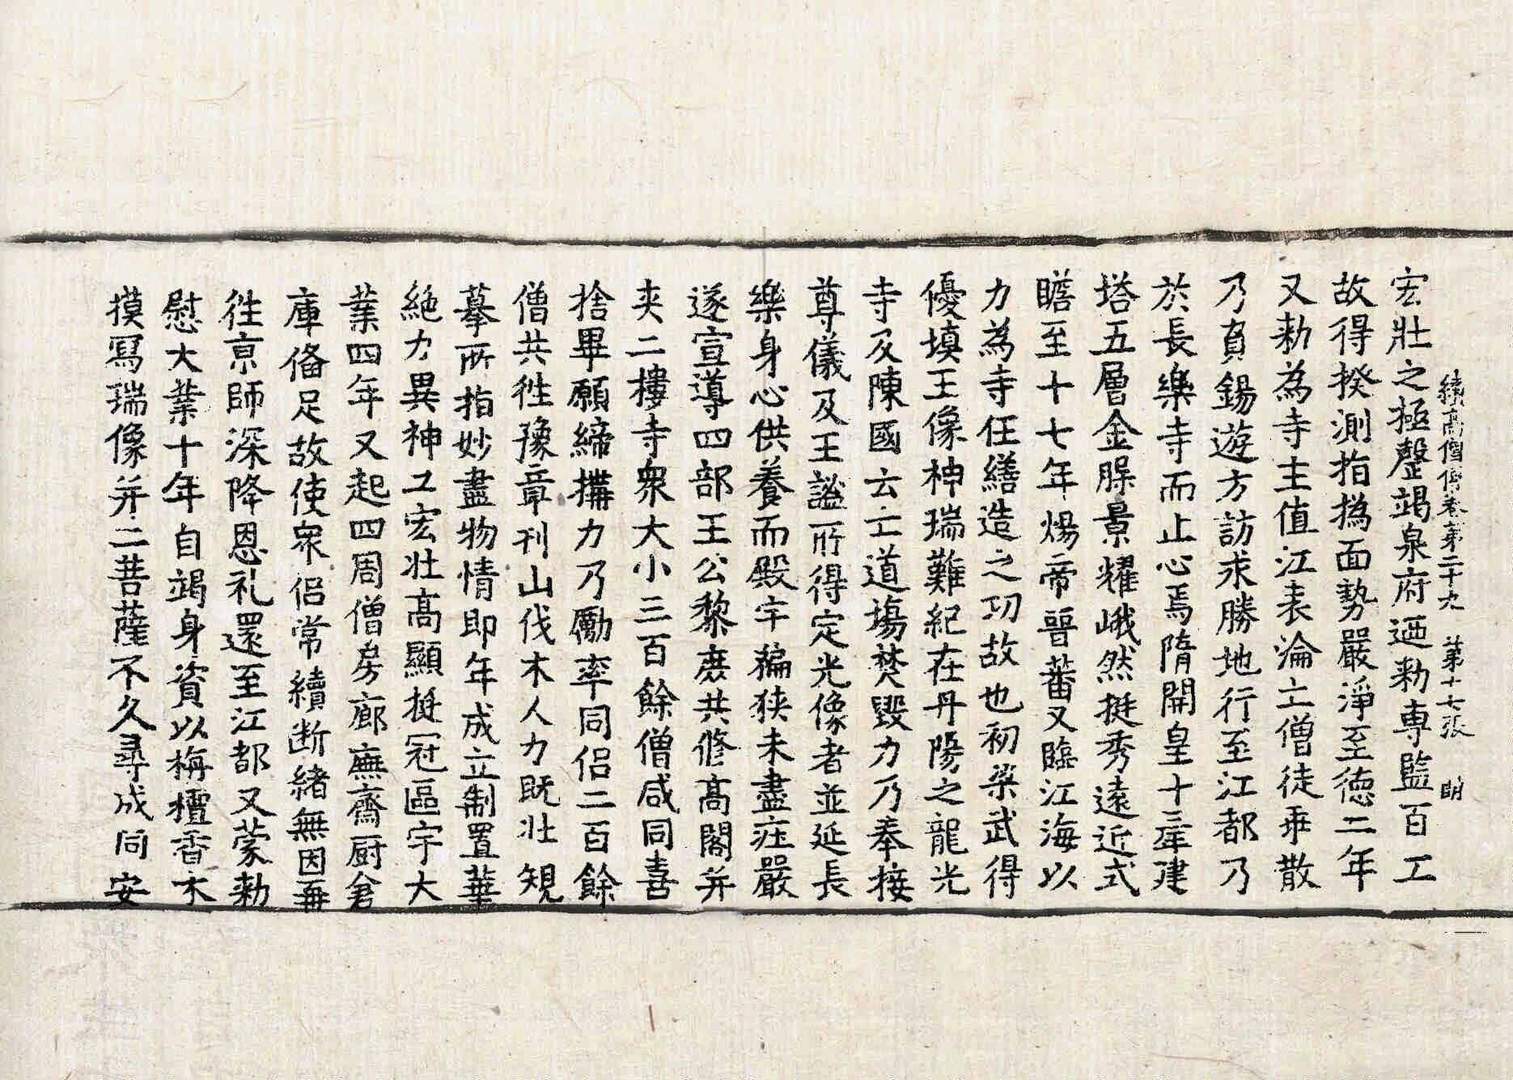 續高僧傳卷第二十九 第十七張 明
宏壯之極罄竭泉府迺勑專監百工
故得揆測指撝面勢嚴淨至德二年
又勑為寺主值江表淪亡僧徒乖散
乃負錫遊方訪求勝地行至江都乃
於長樂寺而止心焉隋開皇十三年建
塔五層金牒景耀峨然挺秀遠近式
瞻至十七年煬帝晉蕃又臨江海以
力為寺任繕造之功故也初梁武得
優填王像神瑞難紀在丹陽之龍光
寺及陳國云亡道場焚毀力乃奉接
尊儀及王謐所得定光像者並延長
樂身心供養而殿宇褊狹未盡庄嚴
遂宣導四部王公黎庶共修高閣并
夾二樓寺眾大小三百餘僧咸同喜
捨畢願締搆力乃勵率同侶二百餘
僧共往豫章刊山伐木人力既壯規
摹所指妙盡物情即年成立制置華
絕力異神工宏壯高顯挺冠區宇大
業四年又起四周僧房廊廡齋厨倉
庫備足故使眾侶常續断緒無因再
往京師深降恩礼還至江都又蒙勑
慰大業十年自竭身資以栴檀香木
摸寫瑞像并二菩薩不久尋成同安